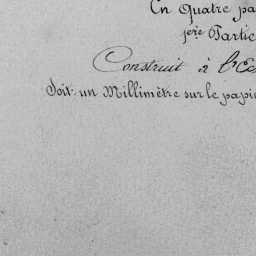 En Quatre pa
1ère Partie
Construit à l'Ec
Soit un Millimètre sur le papi